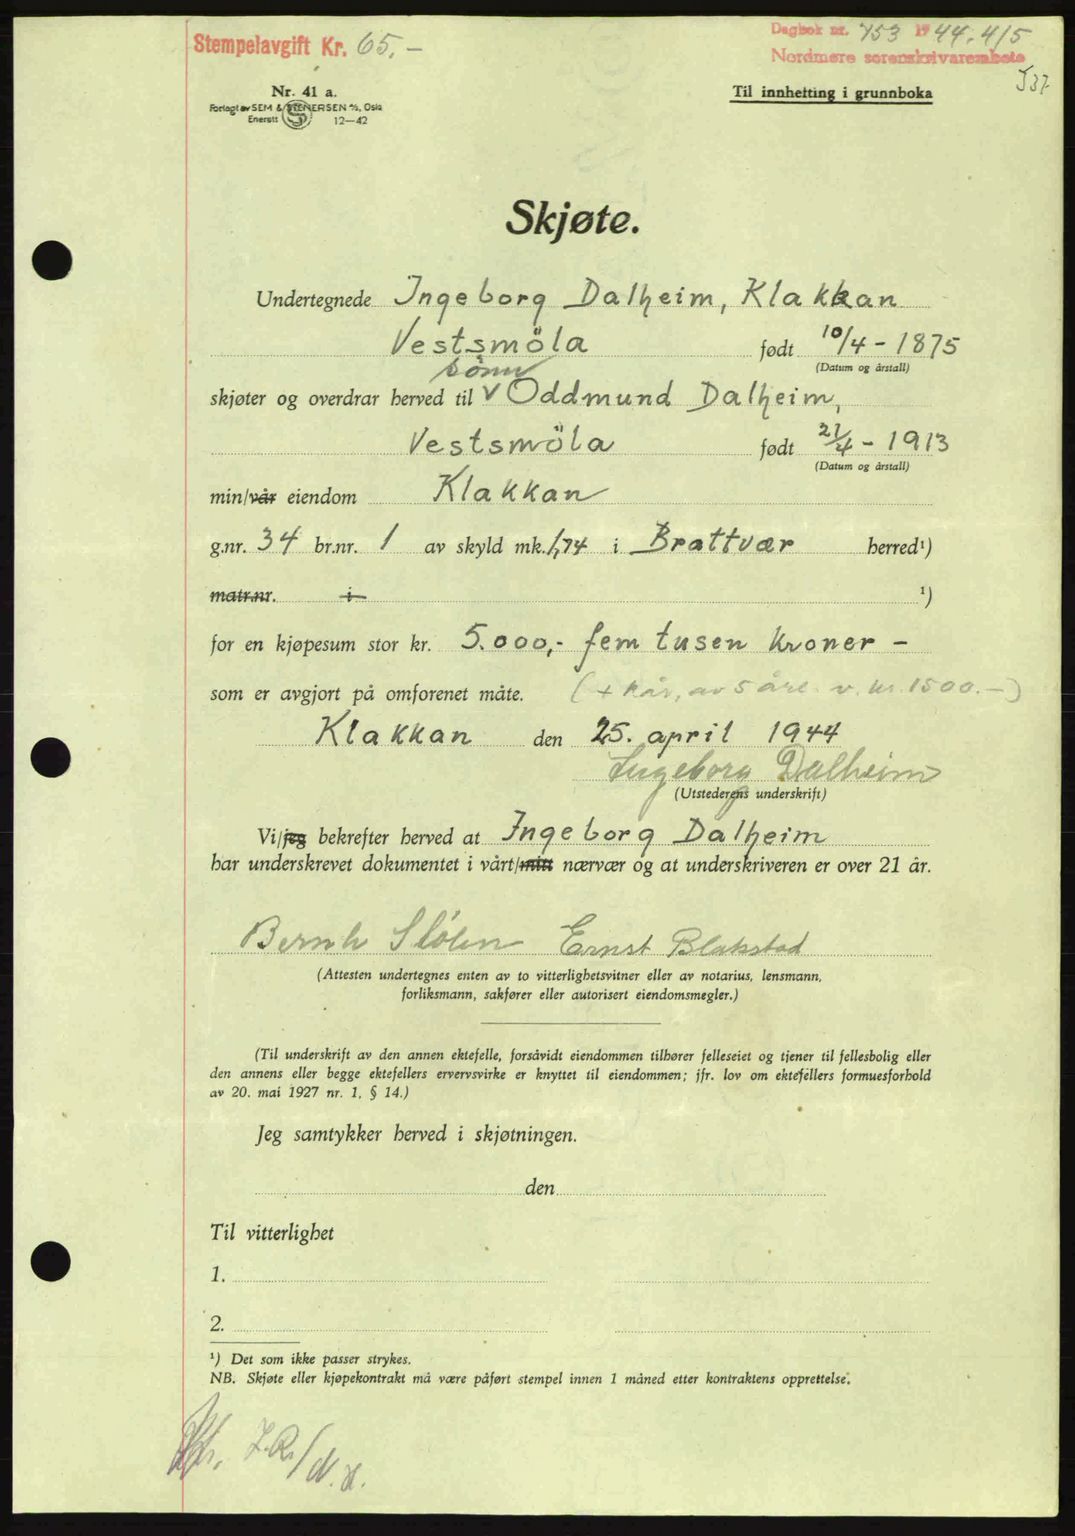 Stempelavgift Kr. 65.-
Dagbok nr. 753 1944. 4/5
Nordmøre sorenskriverembete
537
Nr. 41 a.
Forlagt av SEM & STENERSEN A/S, Oslo
Enerett 12—42
Til innhefting i grunnboka
Skjøte.
Undertegnede Ingeborg Dalheim, Klakkan
Vestsmöla født 10/4 - 1875
(Datum og årstall)
sönn
skjøter og overdrar herved til V Oddmund Dalheim,
Vestsmöla født 21/4 - 1913
(Datum og årstall)
min/vår eiendom Klakkan
g.nr. 34 br.nr. 1 av skyld mk. 1,74 i Brattvær herred¹)
matr.nr. i ¹)
for en kjøpesum stor kr. 5.000,- fem tusen kroner -
som er avgjort på omforenet måte. (+ kår, av 5 årl. v. kr. 1500.-)
Klakkan den 25. april 1944
Ingeborg Dalheim
(Utstederens underskrift)
Vi/jeg bekrefter herved at Ingeborg Dalheim
har underskrevet dokumentet i vårt/mitt nærvær og at underskriveren er over 21 år.
Bernh Stölen Ernst Blakstad
(Attesten undertegnes enten av to vitterlighetsvitner eller av notarius, lensmann,
forliksmann, sakfører eller autorisert eiendomsmegler.)
(Til underskrift av den annen ektefelle, forsåvidt eiendommen tilhører felleseiet og tjener til fellesbolig eller
den annens eller begge ektefellers ervervsvirke er knyttet til eiendommen; jfr. lov om ektefellers formuesforhold
av 20. mai 1927 nr. 1, § 14.)
Jeg samtykker herved i skjøtningen.
den
Til vitterlighet
1.
2.
¹) Det som ikke passer strykes.
NB. Skjøte eller kjøpekontrakt må være påført stempel innen 1 måned etter kontraktens opprettelse.